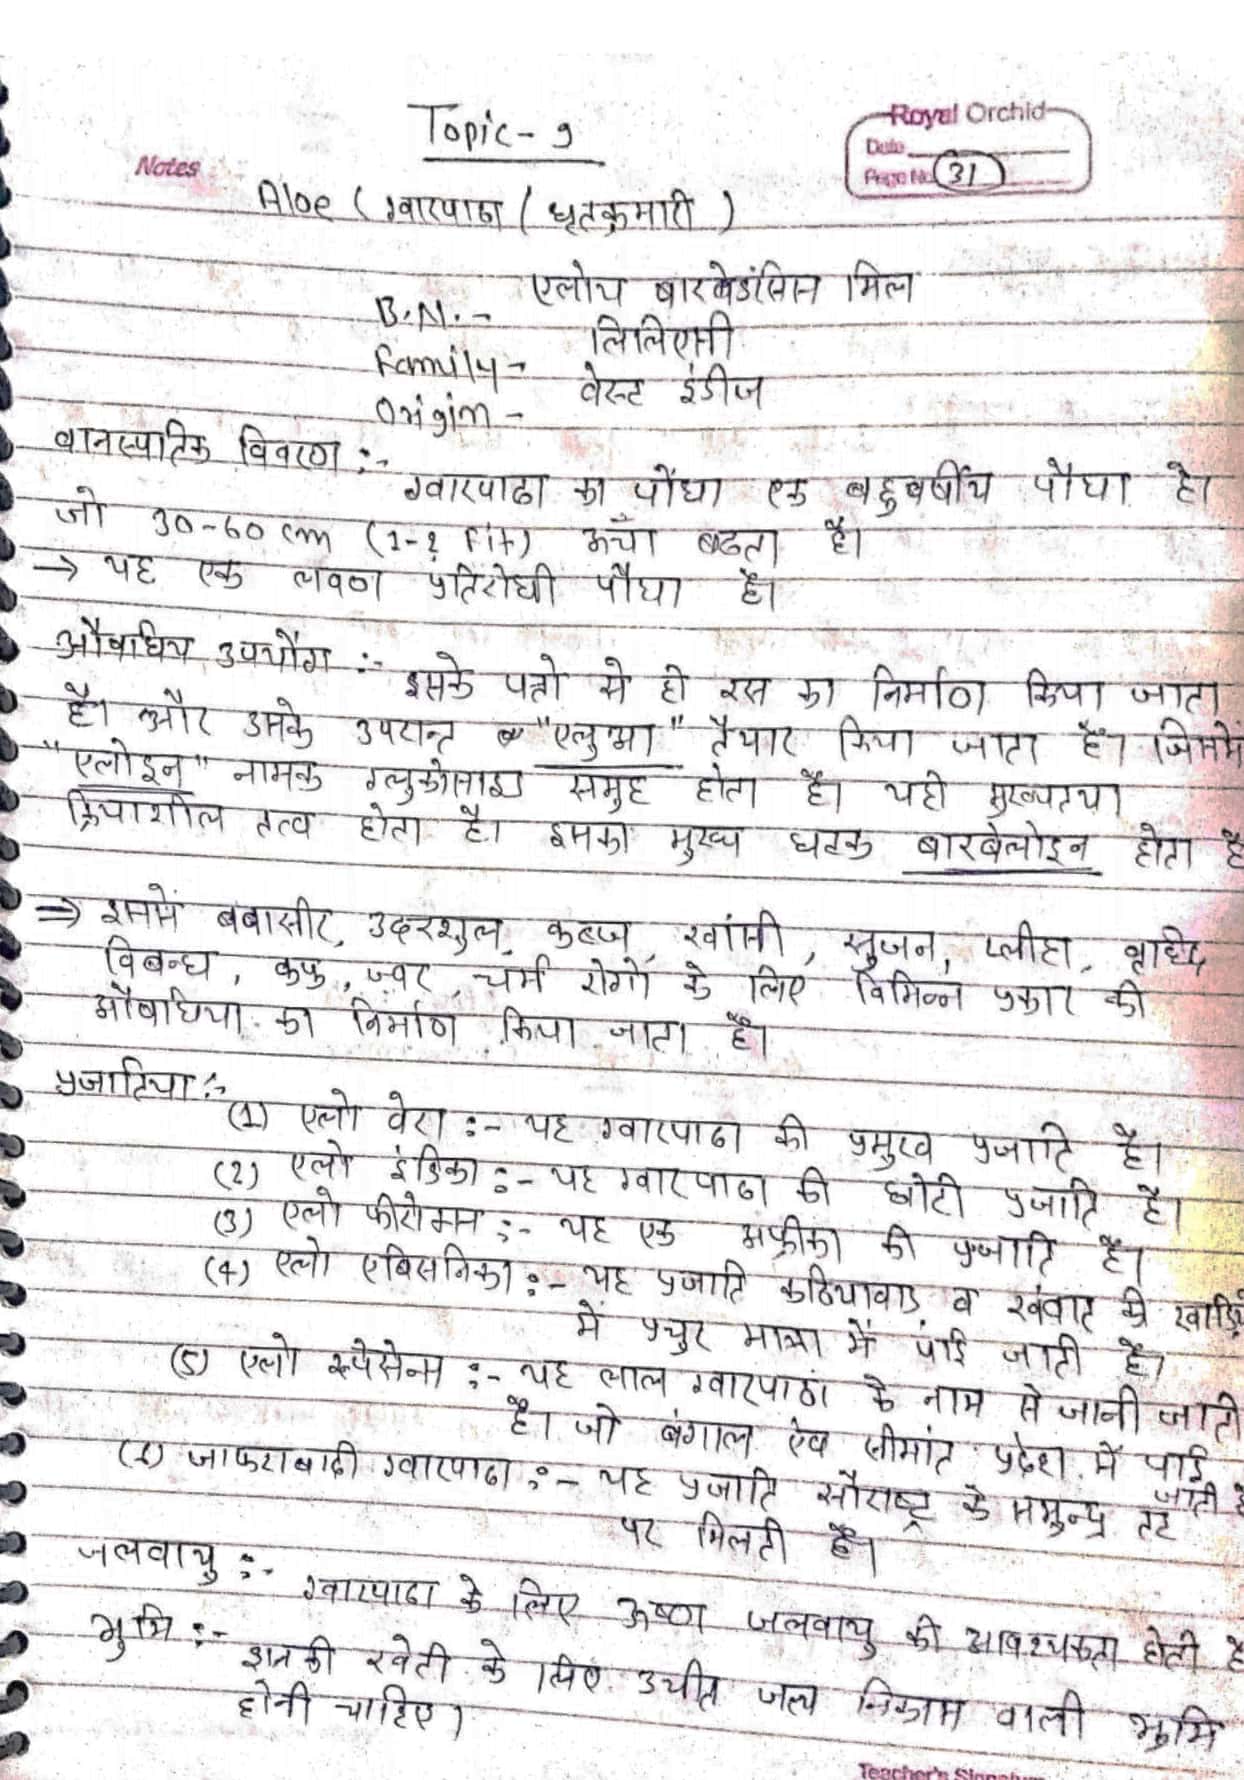 Topic - 9
Royal Orchid
Date
Page No. 31
Notes
Aloe (ग्वारपाठा (घृतकुमारी)
B.N. - एलोय बारबेडंसिस मिल
Family - लिलिएसी
Origin - वेस्ट इंडीज
वानस्पतिक विवरण :-
ग्वारपाठा का पौधा एक बहुवर्षीय पौधा है।
जो 30-60 cm (1-2 Fit) ऊँचा बढता है।
→ यह एक लवण प्रतिरोधी पौधा है।
औषधिय उपयोग :- इसके पत्तो से ही रस का निर्माण किया जाता
है। और उसके उपरान्त "एलुआ" तैयार किया जाता है। जिसमें
"एलोइन" नामक ग्लुकोसाइड समुह होता है। यही मुख्यतया
क्रियाशील तत्व होता है। इसका मुख्य घटक बारबेलोइन होता है
⇒ इसमें बबासीर, उदरशुल, कब्ज, खांसी, सुजन, प्लीहा, वृद्धि
विबन्ध, कफ, ज्वर, चर्म रोगों के लिए विभिन्न प्रकार की
औषधिया का निर्माण किया जाता है।
प्रजातिया :-
(1) एलो वेरा :- यह ग्वारपाठा की प्रमुख प्रजाति है।
(2) एलो इंडिका :- यह ग्वारपाठा की छोटी प्रजाति है।
(3) एलो फीरोक्स :- यह एक अफ्रीका की प्रजाति है।
(4) एलो एबिसनिका :- यह प्रजाति कठियावाड व खंबात की खाडियों
में प्रचुर मात्रा में पाई जाती है।
(5) एलो स्पेसेन्स :- यह लाल ग्वारपाठा के नाम से जानी जाती
है। जो बंगाल ऐव सीमांत प्रदेश में पाई
जाती है
(1) जाफराबादी ग्वारपाठा :- यह प्रजाति सौराष्ट्र के समुन्द्र तट
पर मिलती है।
जलवायु :-
ग्वारपाठा के लिए ऊष्ण जलवायु की आवश्यकता होती है
भुमि :-
इसकी खेती के लिए उचीत जल निकास वाली भुमि
होनी चाहिए।
Teacher's Signature